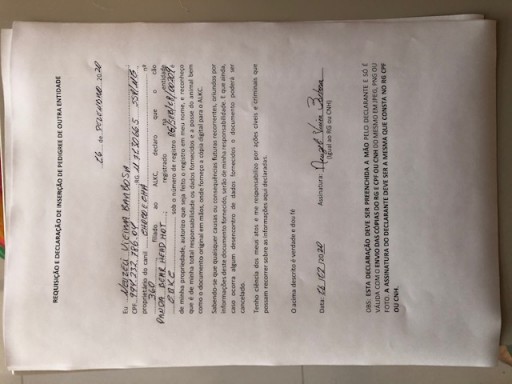 REQUISIÇÃO E DECLARAÇÃO DE INSERÇÃO DE PEDIGREE DE OUTRA ENTIDADE
de DEZEMBRO 2020
Eu
CPF RG SSP/MG
proprietário do canil nº
360 filiado ao ALKC, declaro que o cão
PANDA BEAR HEAD HOT registrado na entidade
CBKC sob o número de registro
de minha propriedade, autorizo que seja feito o registro em meu nome, e reconheço
que é de minha total responsabilidade os dados fornecidos e a posse do animal bem
como o documento original em mãos, onde forneço a cópia digital para o ALKC.
Sabendo-se que quaisquer causas ou consequências futuras recorrentes, oriundos por
informações deste documento fornecido, serão de minha responsabilidade. E que ainda,
caso ocorra algum desencontro de dados fornecidos, o documento poderá ser
cancelado.
Tenho ciência dos meus atos e me responsabilizo por ações cíveis e criminais que
possam recorrer sobre as informações aqui declaradas.
O acima descrito é verdade e dou fé
Data: Assinatura:
(igual ao RG ou CNH)
OBS: ESTA DECLARAÇÃO DEVE SER PREENCHIDA A MÃO PELO DECLARANTE E SÓ É
VÁLIDA COM O ENVIO DAS CÓPIAS DO RG E CPF OU CNH DO MESMO EM JPEG, PNG OU
FOTO. A ASSINATURA DO DECLARANTE DEVE SER A MESMA QUE CONSTA NO RG CPF
OU CNH.